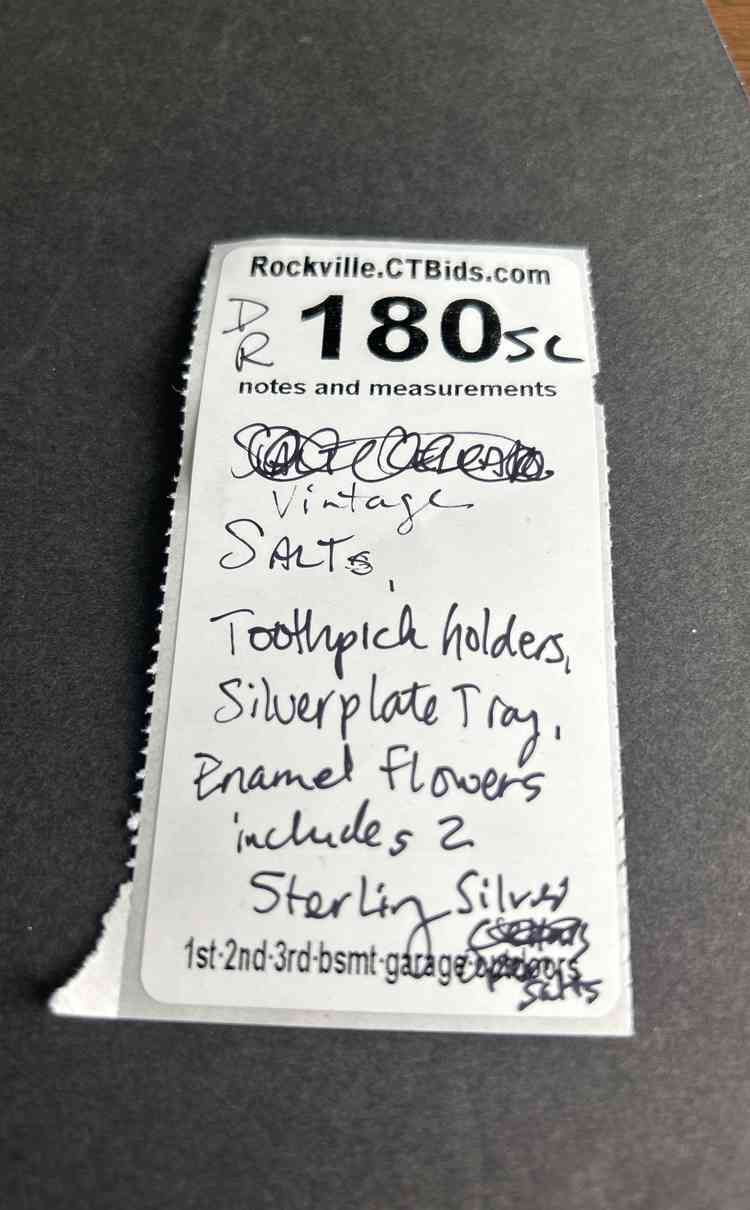 Rockville.CTBids.com
D
R 180 SC
notes and measurements
Vintage
SALTs,
Toothpick holders,
Silverplate Tray,
Enamel Flowers
includes 2
Sterling Silver
1st-2nd-3rd-bsmt-garage-outdoors
Salts